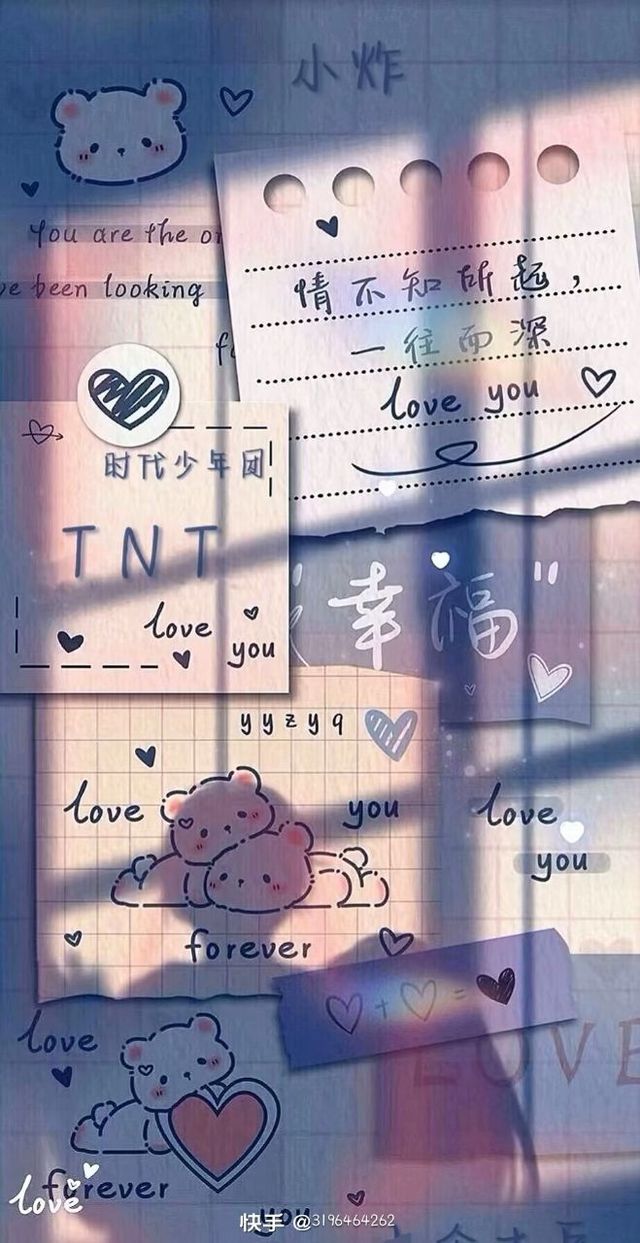 小炸
You are the
been looking
情不知所起，
一往而深
love you
时代少年团
TNT
love
you
幸福"
yyzyq
love you
forever
love
you
+ =
LOVE
love
forever
love
you
快手 @3196464262